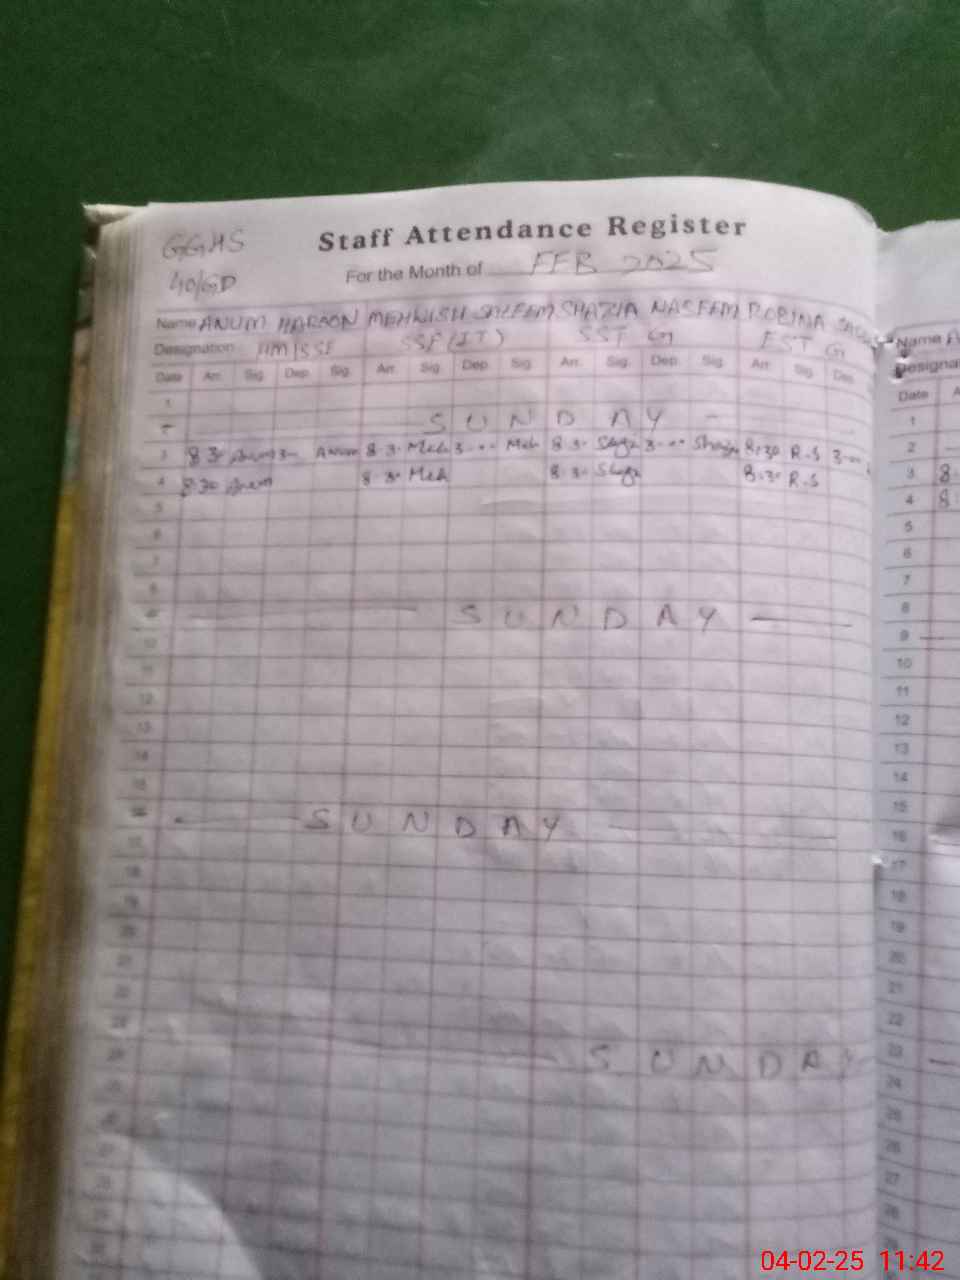 GGHS
Staff Attendance Register
40/GD
For the Month of FEB 2025
Name ANUM HAROON MEHWISH SALEEM SHAZIA NASEEM ROBINA
Designation HM/SSE SSE (IT) SST G EST G
Date Arr. Sig. Dep. Sig. Arr. Sig. Dep. Sig. Arr. Sig. Dep. Sig. Arr. Sig. Dep.
1
SUNDAY
3 8.30 Anum 3- Anum 8.30 Meh 3-00 Meh 8.30 Shaz 3-00 8:30 R.S 3-00
4 8.30 Anum 8.30 Meh 8.30 Shaz 8.30 R.S
5
6
7
8
SUNDAY
10
11
12
13
14
15
SUNDAY
17
18
19
20
21
22
SUNDAY
Name
Designa
Date
1
2
3 8.
4 8.
5
6
7
8
9
10
11
12
13
14
15
16
17
18
19
20
21
22
23
24
25
26
27
28
04-02-25 11:42